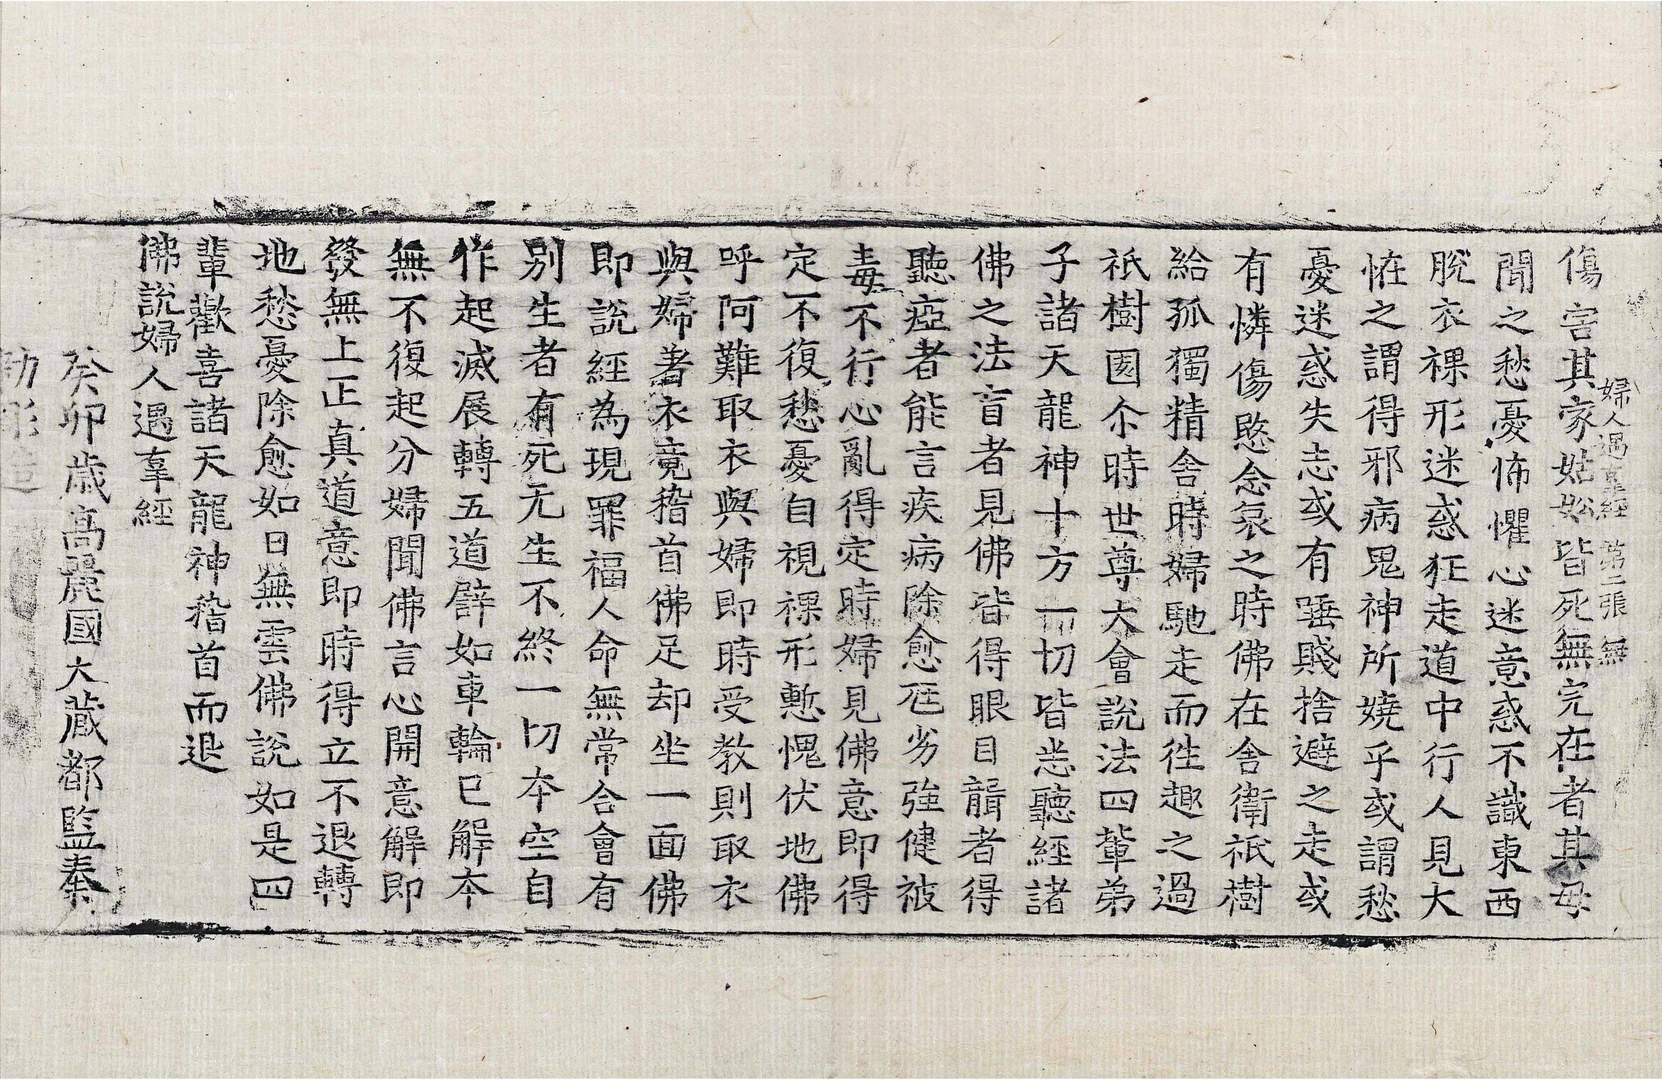 婦人遇辜經 第二張 無
傷害其家姑妐皆死無完在者其母
聞之愁憂怖懼心迷意惑不識東西
脫衣裸形迷惑狂走道中行人見大
恠之謂得邪病鬼神所嬈乎或謂愁
憂迷惑失志或有唾賤捨避之走或
有憐傷愍念哀之時佛在舍衛祇樹
給孤獨精舍時婦馳走而徃趣之過
祇樹園尒時世尊大會說法四輩弟
子諸天龍神十方一切皆悉聽經諸
佛之法盲者見佛皆得眼目聾者得
聽瘂者能言疾病除愈尫劣強健被
毒不行心亂得定時婦見佛意即得
定不復愁憂自視裸形慙愧伏地佛
呼阿難取衣與婦即時受教則取衣
與婦著衣竟稽首佛足却坐一面佛
即說經為現罪福人命無常合會有
別生者有死无生不終一切本空自
作起滅展轉五道譬如車輪已解本
無不復起分婦聞佛言心開意解即
發無上正真道意即時得立不退轉
地愁憂除愈如日無雲佛說如是四
輩歡喜諸天龍神稽首而退
佛說婦人遇辜經
癸卯歲高麗國大藏都監奉
勅彫造